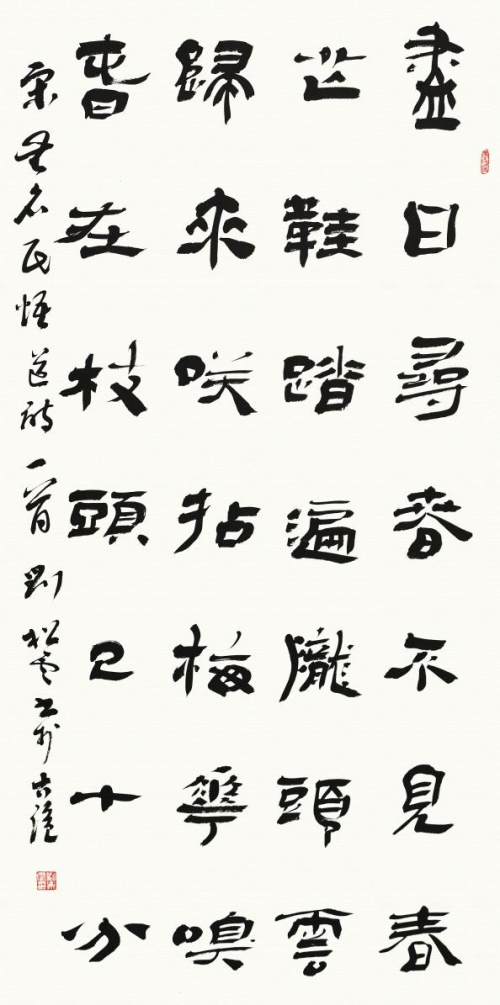 盡日尋春不見春
芒鞋踏遍隴頭雲
歸來咲拈梅華嗅
春在枝頭已十分
宋无名氏悟道詩一首劉